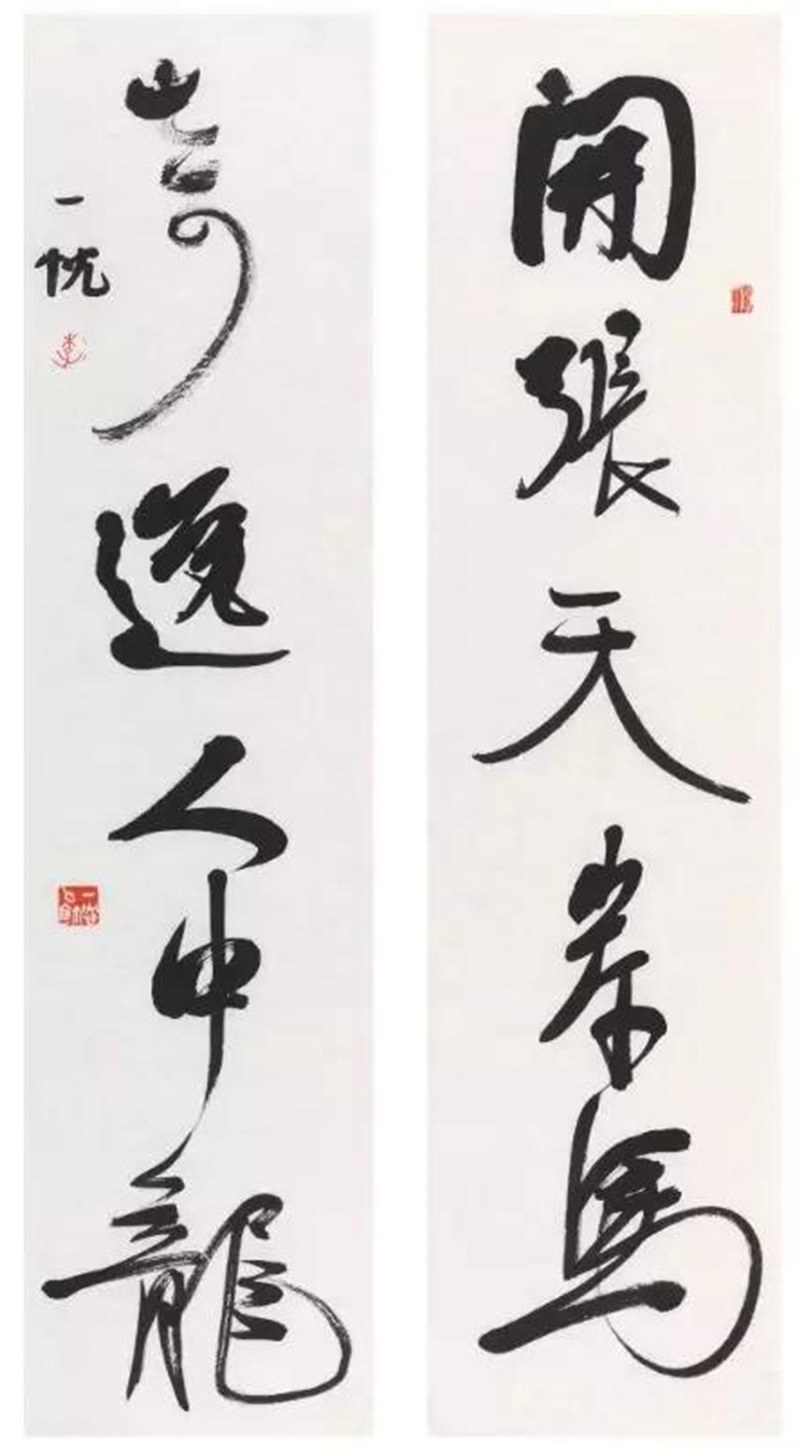 開張天岸馬
奇逸人中龍
一忱